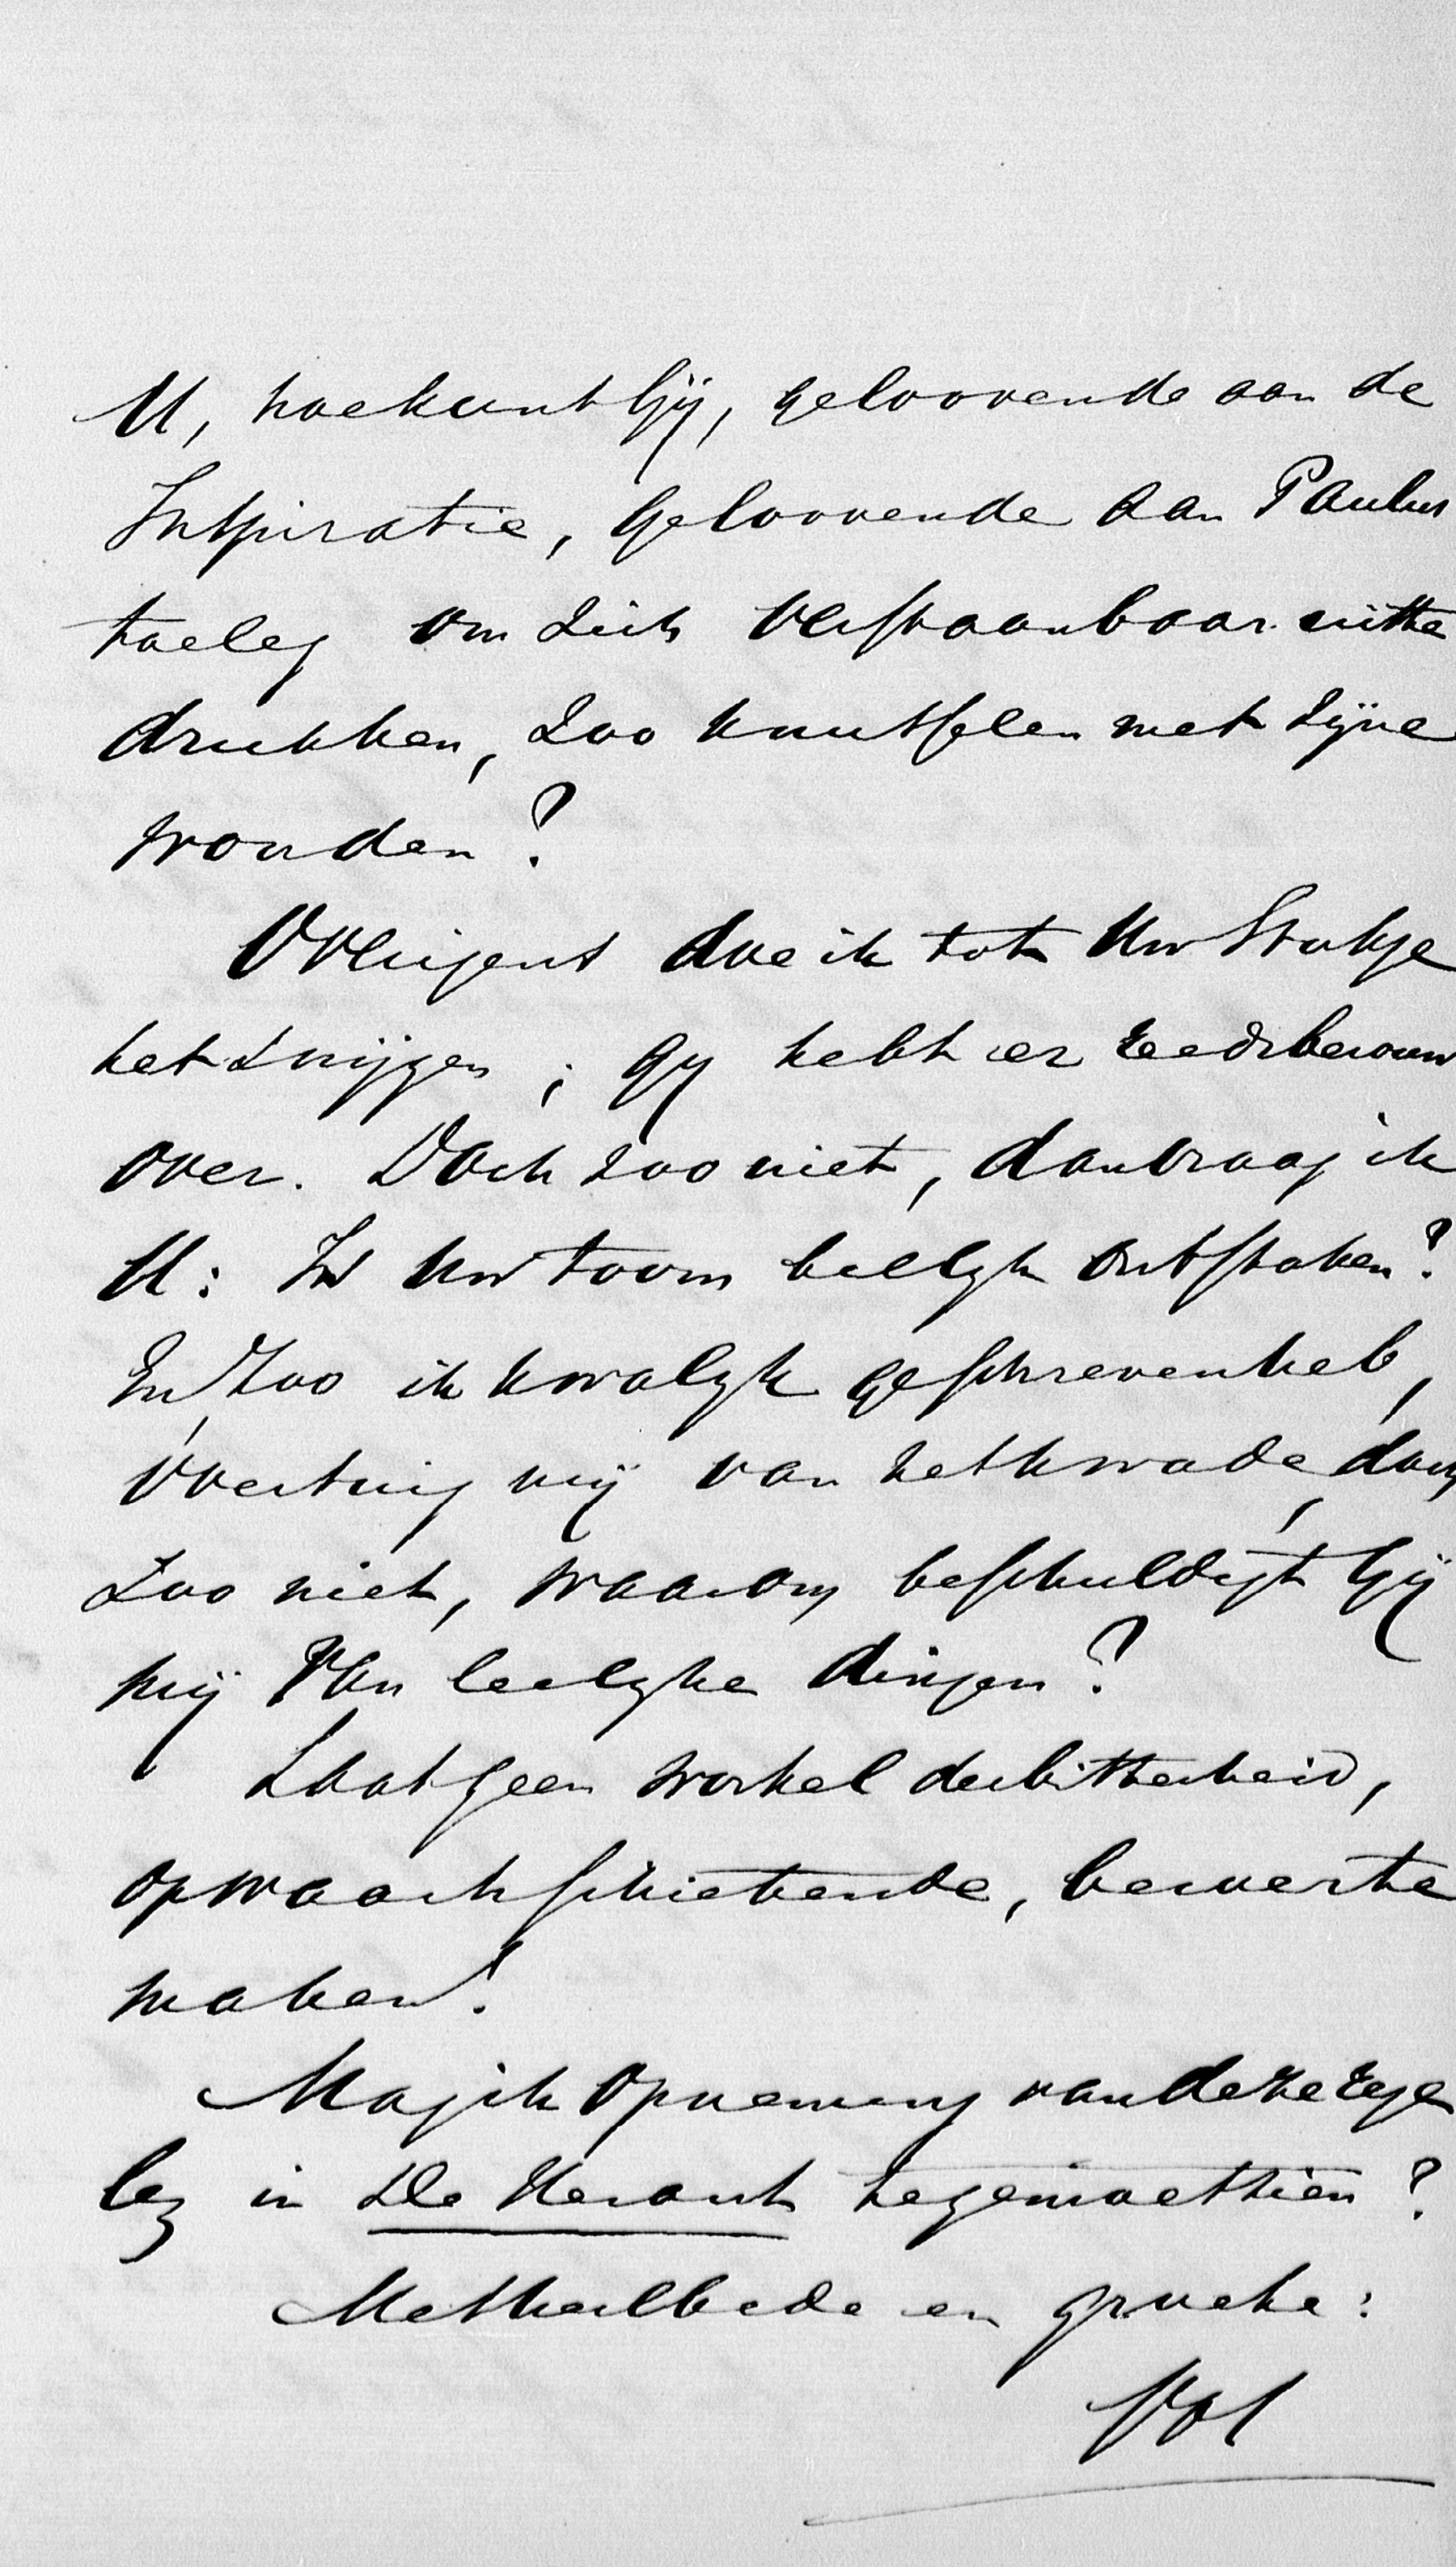 U, hoe kunt Gij, geloovende aan de
Inspiratie, geloovende aan Paulus
toeleg om zich verstaanbaar uit te
drukken, zoo knutselen met zijne
woorden?
Overigens doe ik tot Uw Stukje
het zwijgen; gij hebt er reeds berouw
over. Doch zoo niet, dan vraag ik
U: Is Uw toorn billijk ontstoken?
En, zoo ik kwalijk geschreven heb,
overtuig mij van het kwade, doch
zoo niet, waarom beschuldigt Gij
mij van leelijke dingen?
Laat geen wortel der bitterheid,
opwaarts schietende, beroerte
maken!
Mag ik opneming van deze rege
len in De Heraut tegemoet zien?
Met heilbede en groete:
Vos